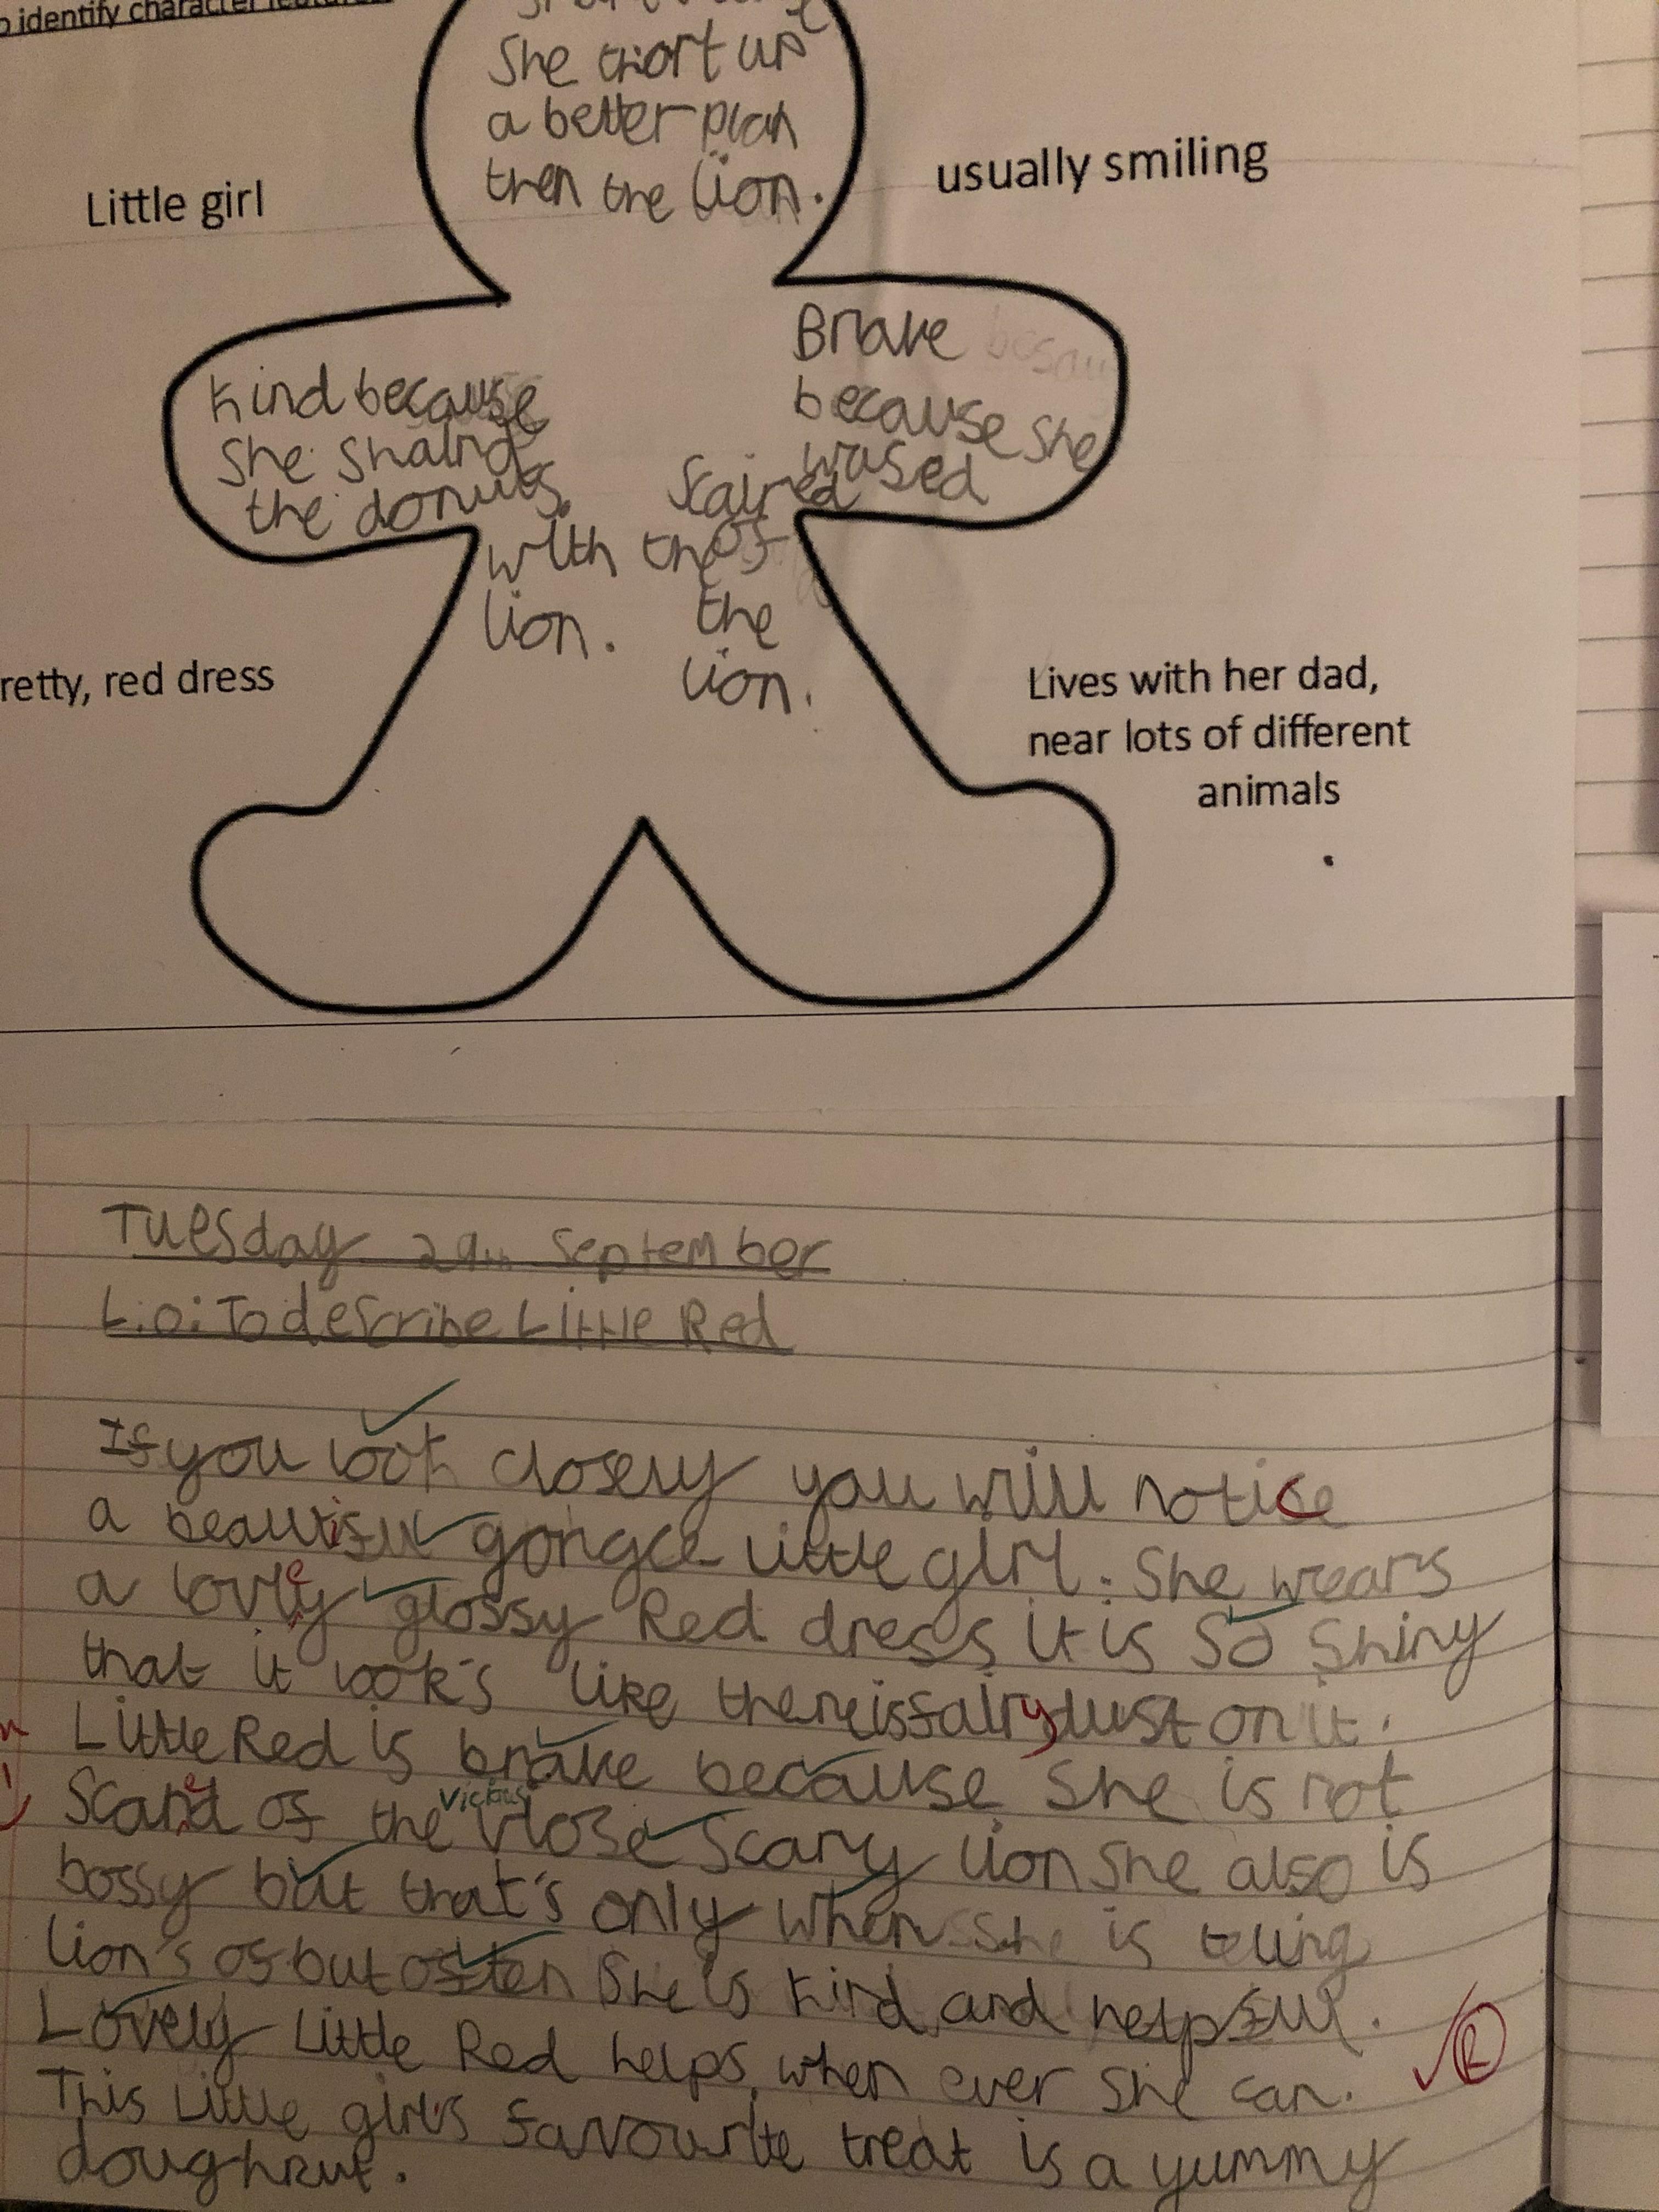 o identify character features
She thort up
a better plan
then the lion.
Little girl
usually smiling
Kind because
she shaird
the donuts
with the
lion.
Brave
because she
wased
scaired
of
the
lion.
retty, red dress
Lives with her dad,
near lots of different
animals
Tuesday 29th September
L.o: To describe Little Red
If you look closely you will notice
a beautiful gorgce little girl. She wears
a lovely glossy Red dress it is so shiny
that it look's like there is fairy dust on it.
Little Red is brave because she is not
Scared of the viose scary lion she also is
vicious
bossy but that's only when she is teling
lion's of but often she is kind and helpful.
Lovely Little Red helps when ever she can.
This Little girls favourite treat is a yummy
doughnut.